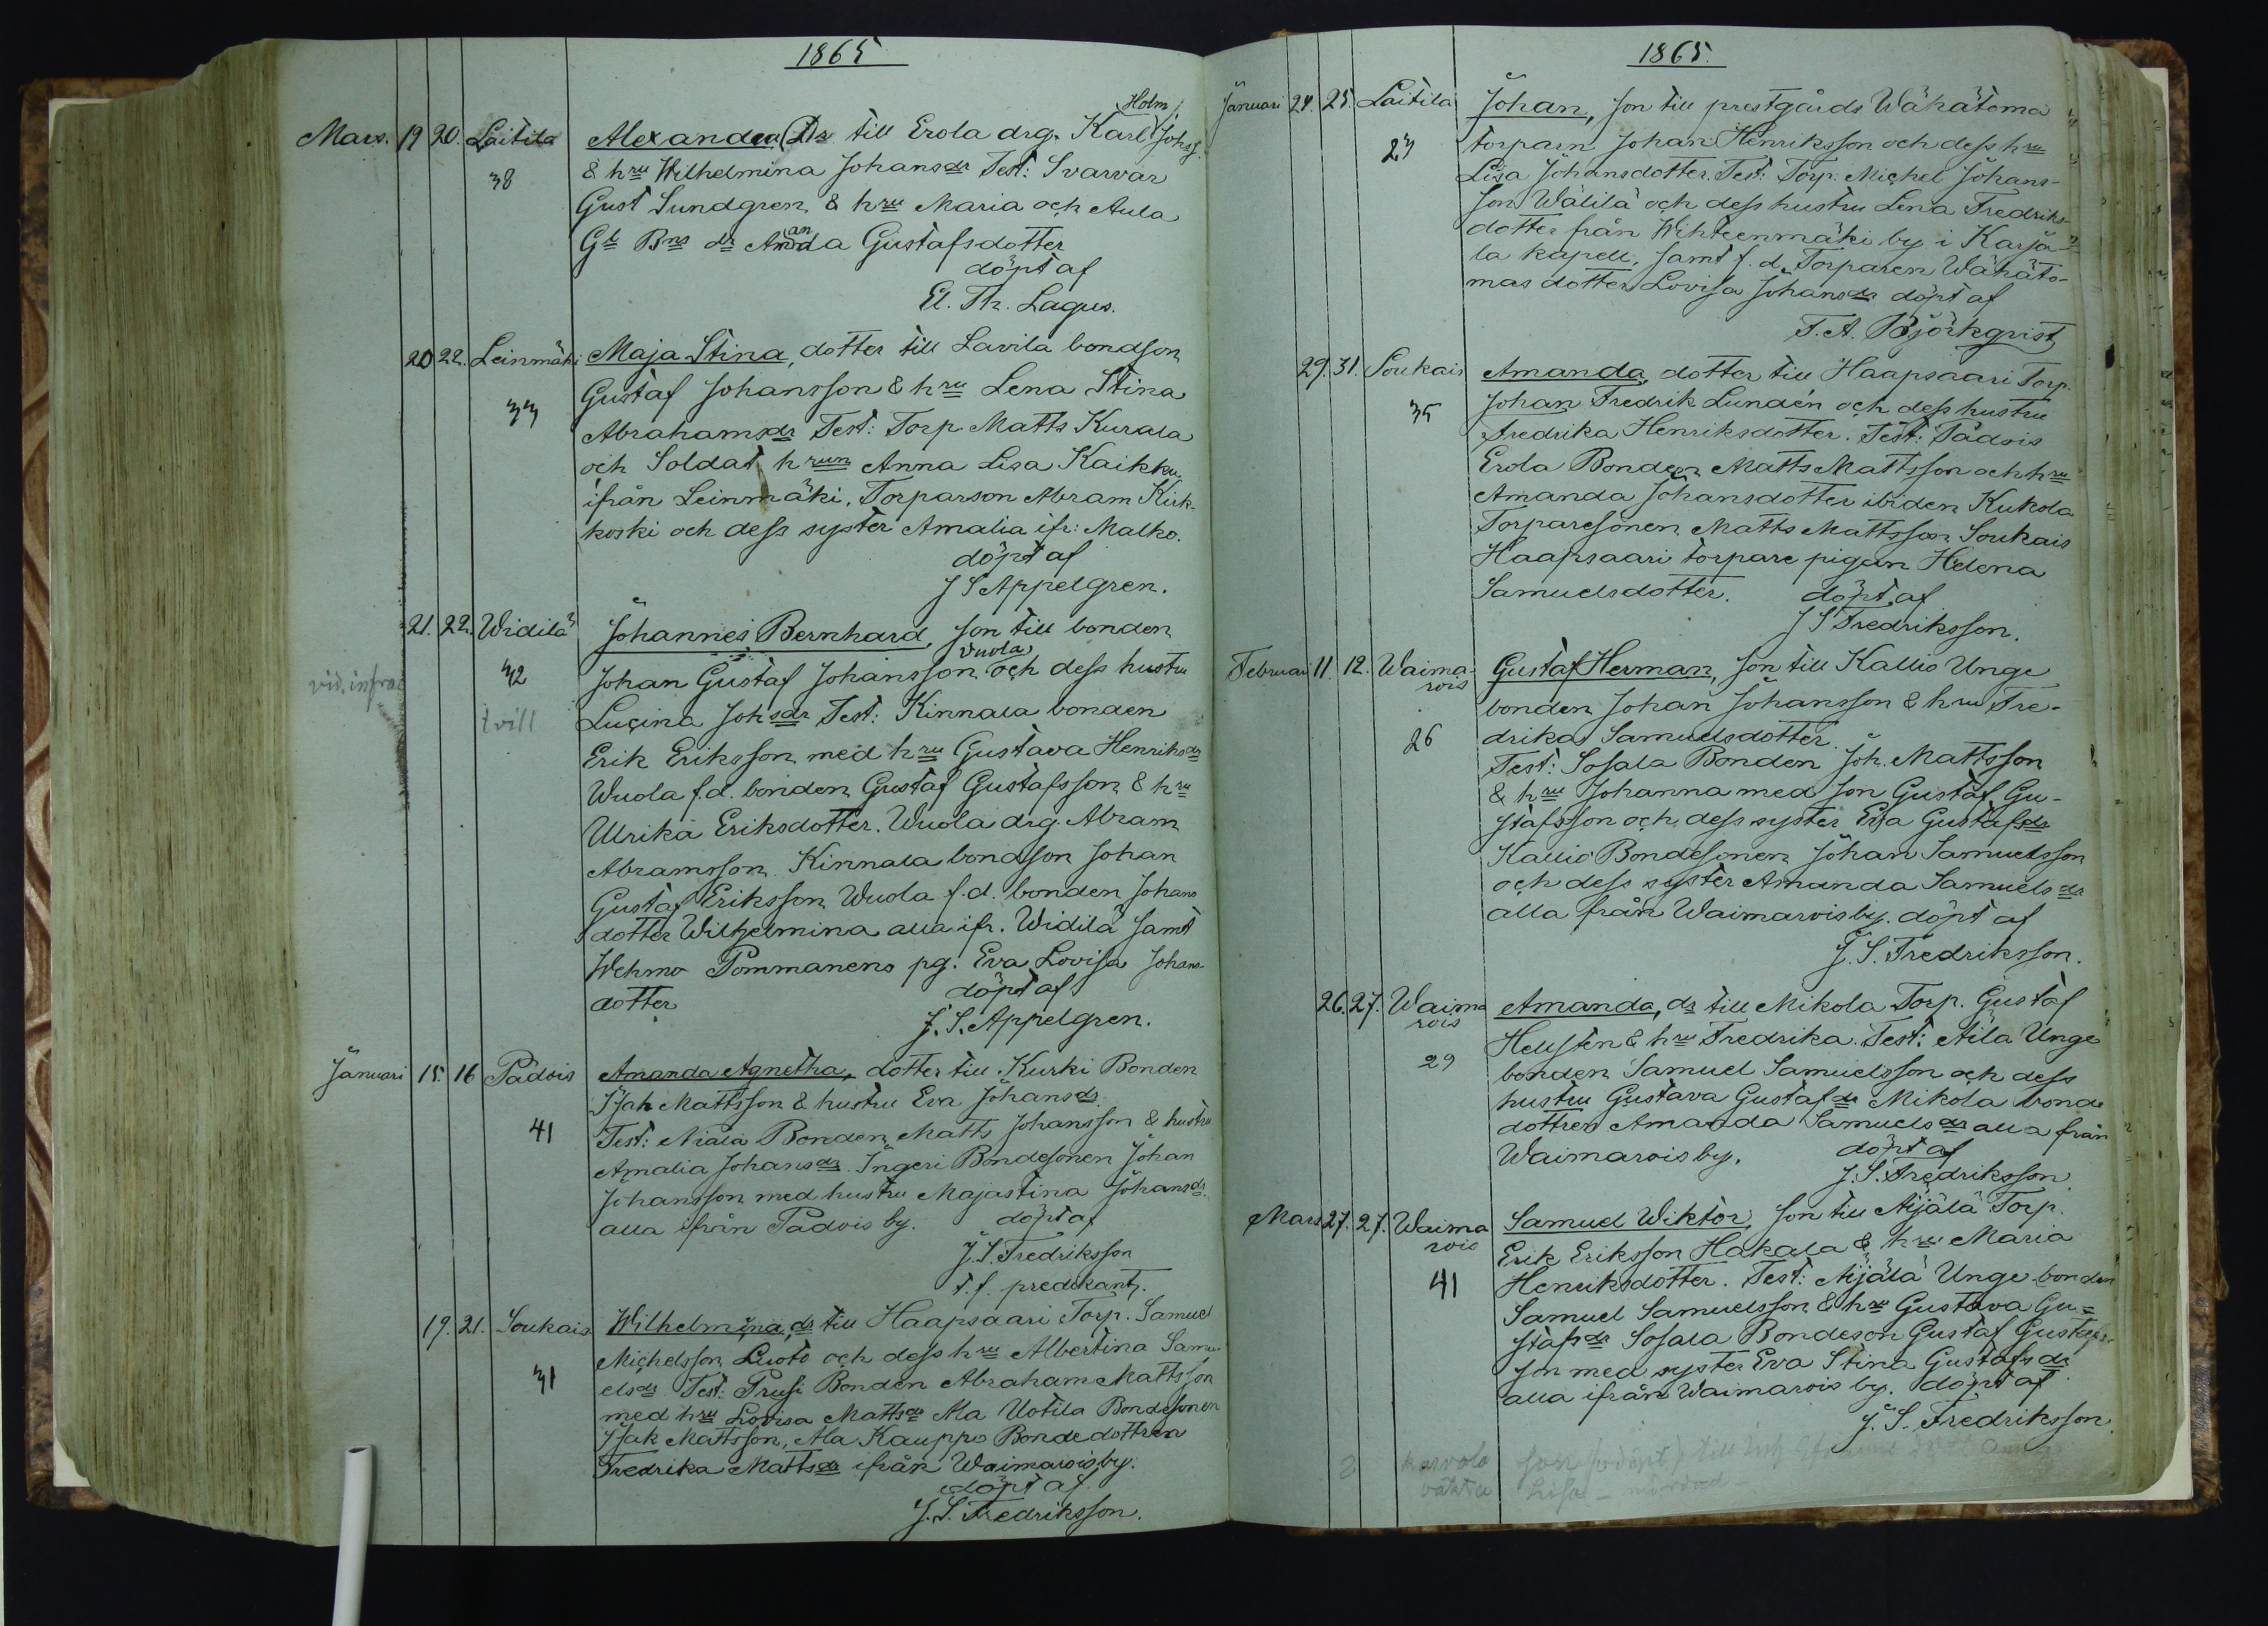 1865
Mars. 19 20. Laitila Alexandra, Dr till Erola drg. Karl Holm Johsf.
38 & hru Wilhelmina Johansdr Test: Svarvar
Gust Sundgren & hru Maria och Aula
Gl Bns dr Amanda Gustafsdotter
döpt af
El. Th. Lagus.
20 22. Leinmäki Maja Stina, dotter till Lavila bondson
33 Gustaf Johansson & hru Lena Stina
Abrahamsdr Test: Torp. Matts Kurala
och Soldat hrun Anna Lisa Kaikku
ifrån Leinmäki. Torparson Abram Kirk-
koski och dess syster Amalia ifr: Malko.
döpt af
J S Appelgren.
21. 22. Widilä Johannes Bernhard, son till bonden
vid. infra 32 Johan Gustaf Johansson Vuola och dess hustru
tvill Lucina Johsdr Test: Kinnala bonden
Erik Eriksson med hru Gustava Henriksdr
Wuola f.d. bonden Gustaf Gustafsson & hru
Ulrika Eriksdotter. Wuola drg. Abram
Abramsson. Kinnala bondson Johan
Gustaf Eriksson Wuola f.d. bonden Johans
dotter Wilhelmina alla ifr. Widilä samt
Wehmo Pommanens pg. Eva Lovisa Johans-
dotter döpt af
J. S. Appelgren.
Januari 15. 16 Padois Amanda Agnetha, dotter till Kurki Bonden
Isak Mattsson & hustru Eva Johansdr.
41 Test: Niala Bonden Matts Johansson & hustru
Amalia Johansdr. Ingeri Bondesonen Johan
Johansson med hustru Majastina Johansdr.
alla ifrån Padois by. döpt af
J. S. Fredriksson
t. f. predikant.
19. 21. Soukais Wilhelmina, dr till Haapsaari Torp. Samuel
Michelsson Luoto och dess hru Albertina Samu-
31 elsdr Test: Prusi Bonden Abraham Mattsson
med hru Lovisa Mattsdr Ala Uotila Bondesonen
Isak Mattsson, Ala Kauppo Bondedottren
Fredrika Mattsdr ifrån Waimarois by.
döpt af
J. S. Fredriksson.
1865.
Januari 24. 25. Laitila Johan, son till prestgårds Wähätoma
23 torparn Johan Henriksson och dess hru
Lisa Johansdotter. Test: Torp. Michel Johans-
son Wälilä och dess hustru Lena Fredriks-
dotter från Wehteenmäki by i Karja-
la kapell, samt f. d. Torparen Wähäto-
mas dotter Lovisa Johansdr döpt af
F. A. Björkqvist
29. 31. Soukais Amanda, dotter till Haapsaari Torp.
35 Johan Fredrik Lundén och dess hustru
Fredrika Henriksdotter. Test: Padois
Erola Bonden Matts Mattsson och hru
Amanda Johansdotter ibidem Kukola
Torparesonen Matts Mattsson Soukais
Haapsaari torpare pigan Helena
Samuelsdotter. döpt af
J S Fredriksson.
Februari 11. 12. Waima- Gustaf Herman, son till Kallio Unge
rois bonden Johan Johansson & hru Fre-
26 drika Samuelsdotter.
Test: Sosala Bonden Joh. Mattsson
& hru Johanna med son Gustaf Gu-
stafsson och dess syster Eva Gustafsdr
Kallio Bondesonen Johan Samuelsson
och dess syster Amanda Samuelsdr
alla från Waimarois by. döpt af
J. S. Fredriksson.
26. 27. Waima Amanda, dr till Mikola Torp. Gustaf
rois Hellsten & hru Fredrika. Test: Aila Unge
29 bonden Samuel Samuelsson och dess
hustru Gustava Gustafsdr Mikola bonde
dottren Amanda Samuelsdr alla från
Waimarois by. döpt af
J. S. Fredriksson.
Mars 27. 27. Waima Samuel Wiktor, son till Aijälä Torp.
rois Erik Eriksson Hakala & hru Maria
41 Henriksdotter. Test: Aijälä Unge bonden
Samuel Samuelsson & hru Gustava Gu=
stafsdr Sosala Bondeson Gustaf Gustafs-
son med syster Eva Stina Gustafsdr
alla ifrån Waimarois by. döpt af
J. S. Fredriksson.
2 Karvola son (odöpt) till
Lisa - mördad -